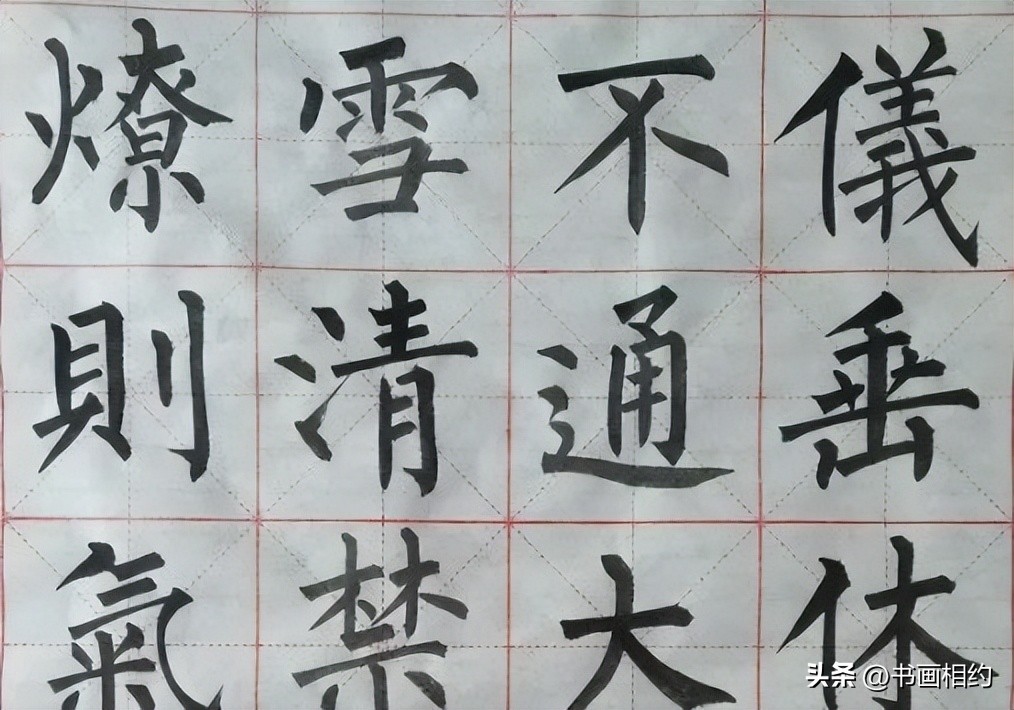 儀垂休
不通大
雪清禁
燎則氣
头条 @书画相约